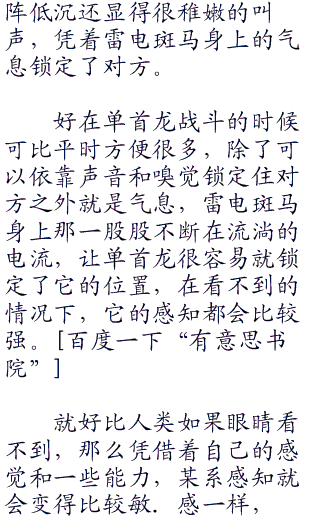 阵低沉还显得很稚嫩的叫
声，凭着雷电斑马身上的气
息锁定了对方。
好在单首龙战斗的时候
可比平时方便很多，除了可
以依靠声音和嗅觉锁定住对
方之外就是气息，雷电斑马
身上那一股股不断在流淌的
电流，让单首龙很容易就锁
定了它的位置，在看不到的
情况下，它的感知都会比较
强。[百度一下“有意思书
院”]
就好比人类如果眼睛看
不到，那么凭借着自己的感
觉和一些能力，某系感知就
会变得比较敏．感一样，